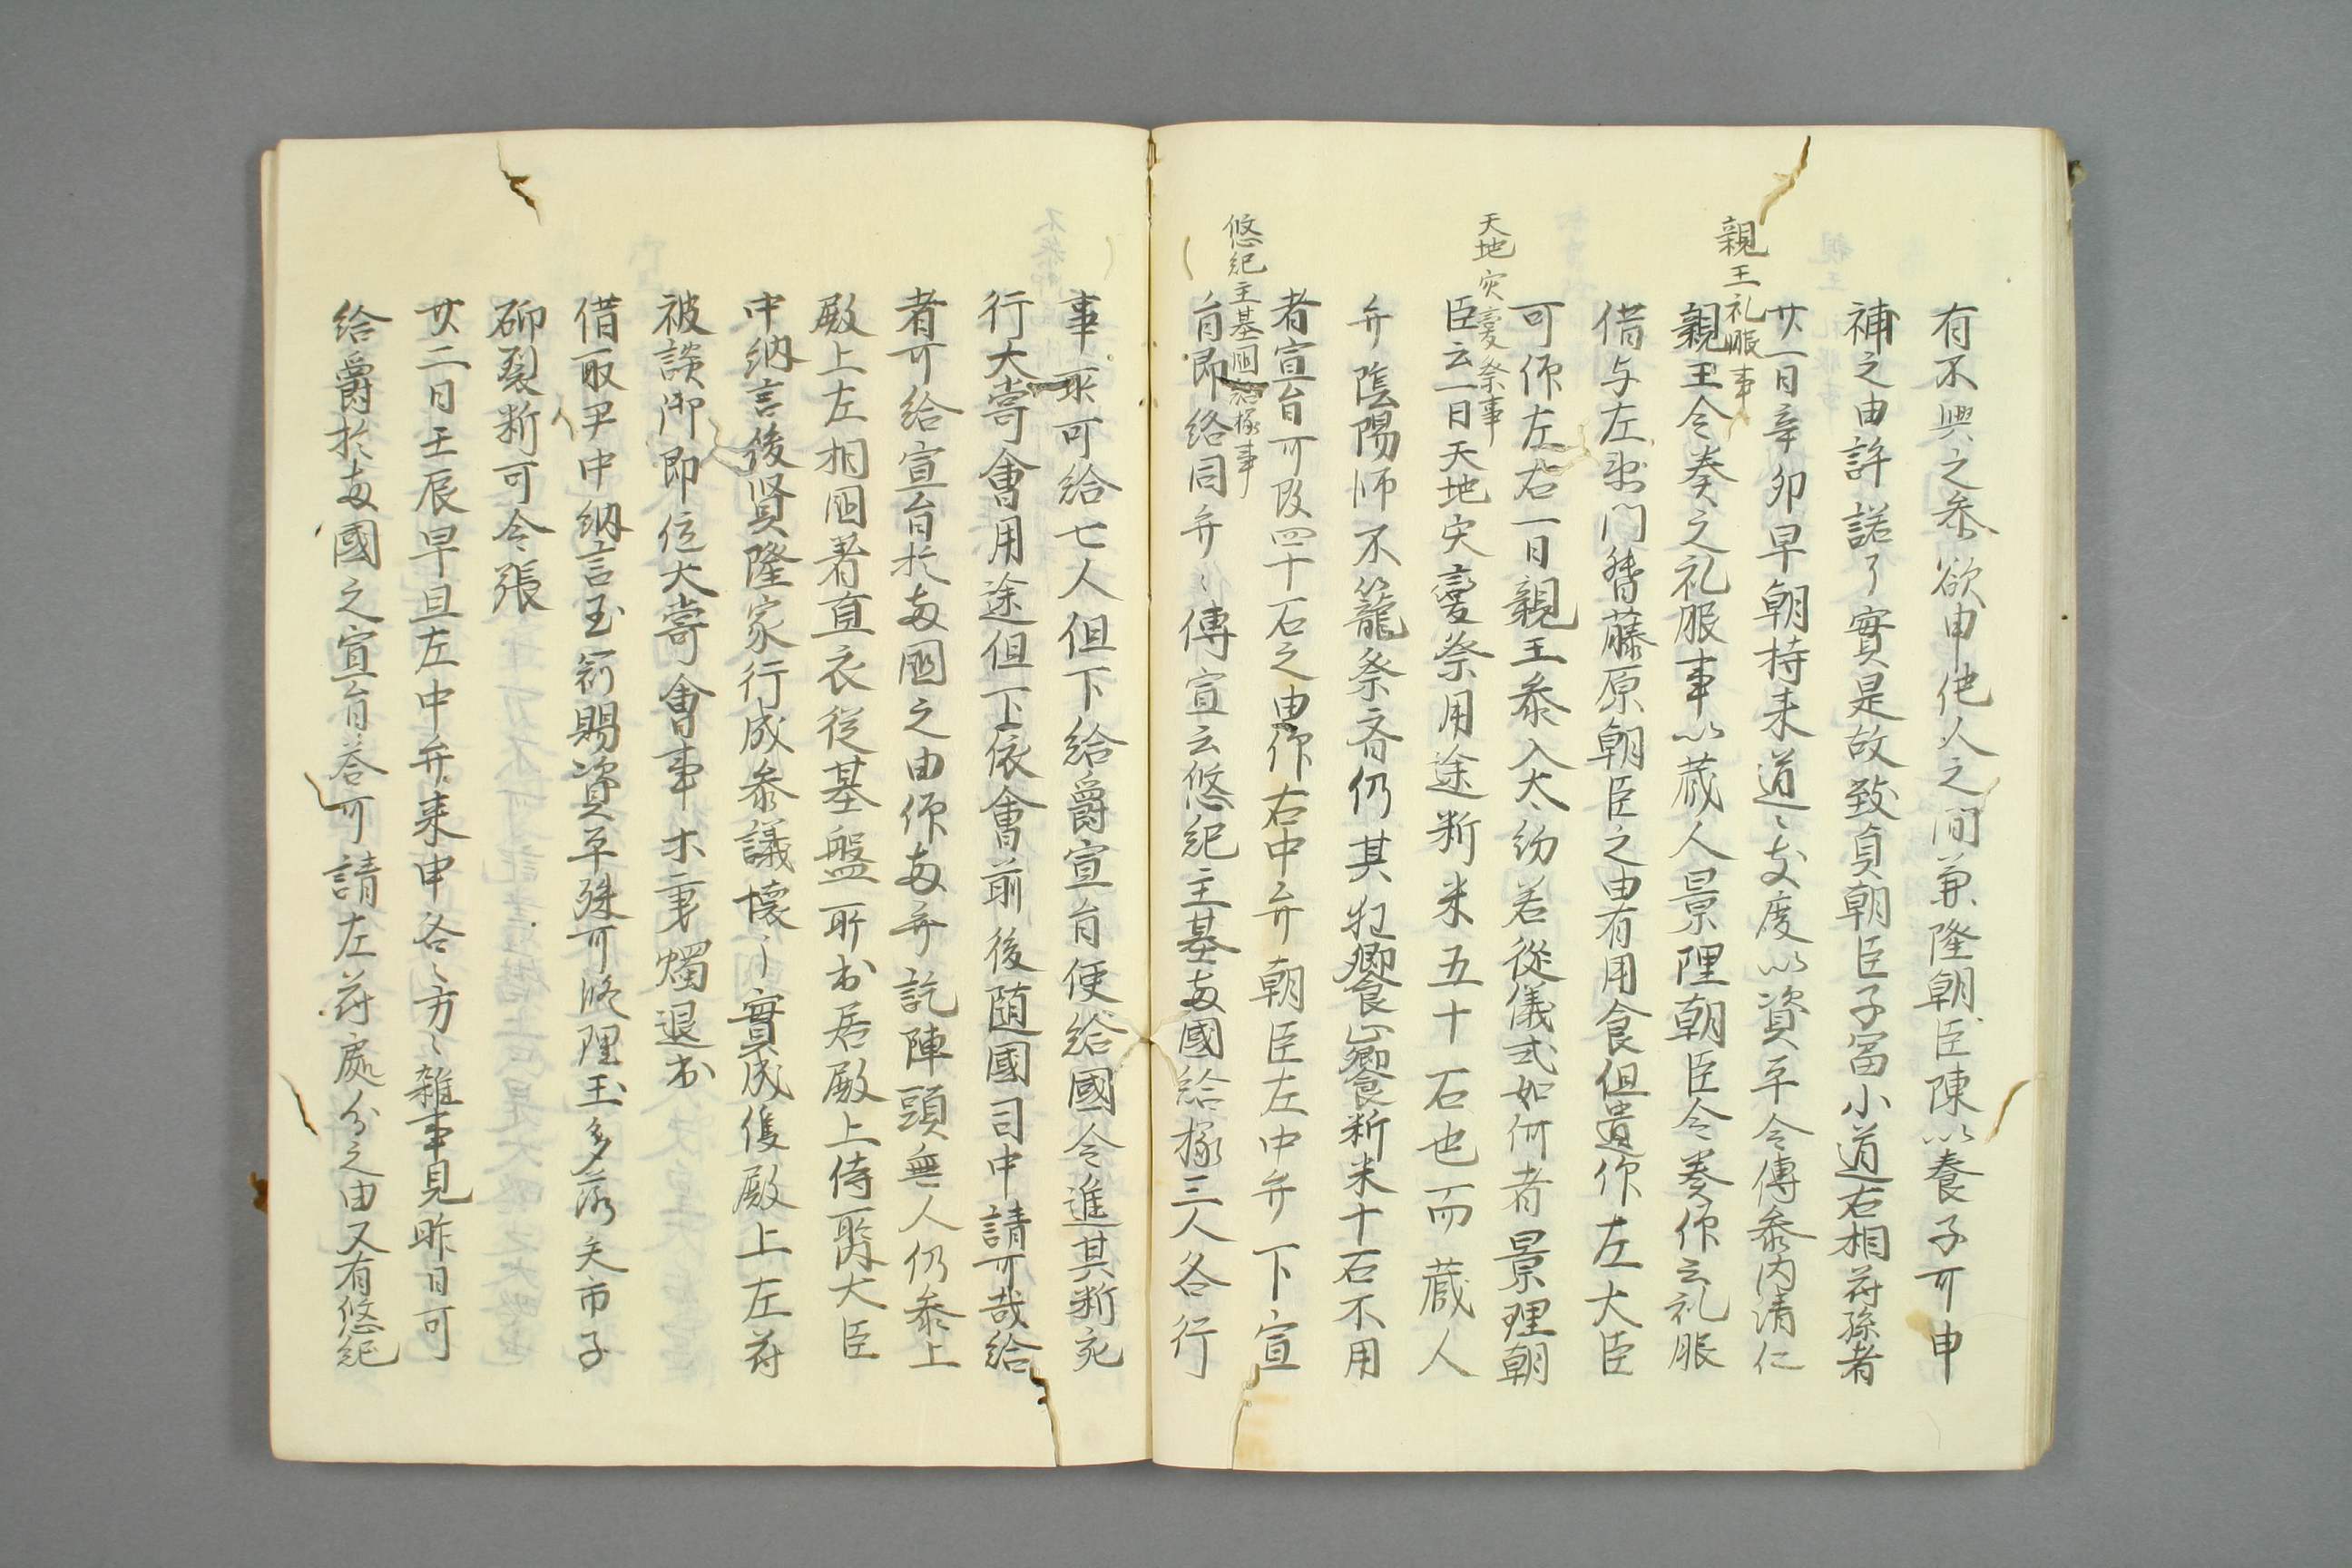 有不興之参欲申他人之間兼隆朝臣陳以養子可申
補之由許諾了實是故致貞朝臣子冨小道右相苻孫者
親王礼服事
廿一日辛卯早朝持来道〻支度以資平令傳参内清仁
親王令奏之礼服事以蔵人景理朝臣令奏仰云礼服
借与左衛門督藤原朝臣之由有用食但遣仰左大臣
可仰左右一日親王参入太約若従儀式如何者景理朝
天地灾變祭事
臣云一日天地灾變祭用途断米五十石也而蔵人
弁陰陽師不籠祭斎仍其犯饗〻断米十石不用
者宣旨可改四十石之由仰右中弁朝臣左中弁下宣
悠紀主基國給椽事
旨即給同弁〻傳宣云悠紀主基两國給椽三人各行
事所可給七人但下給爵宣旨便給國令進其断充
行大嘗會用途但下依會前後随國司申請可哉給
者可給宣旨於两國之由仰两弁訖陣頭無人仍参上
殿上左相國著直衣従基盤所出居殿上侍聚大臣
中納言後賢隆家行成参議懐〻實成隻殿上左苻
被談御即位大嘗會事木秉燭退出
借取尹中納言玉笏賜資平殊可修理玉多落失市子
砌裂断可令張
廿二日壬辰早旦左中弁来申各〻方〻雜事見昨日可
給爵於两國之宣旨答可請左苻處分之由又有悠紀